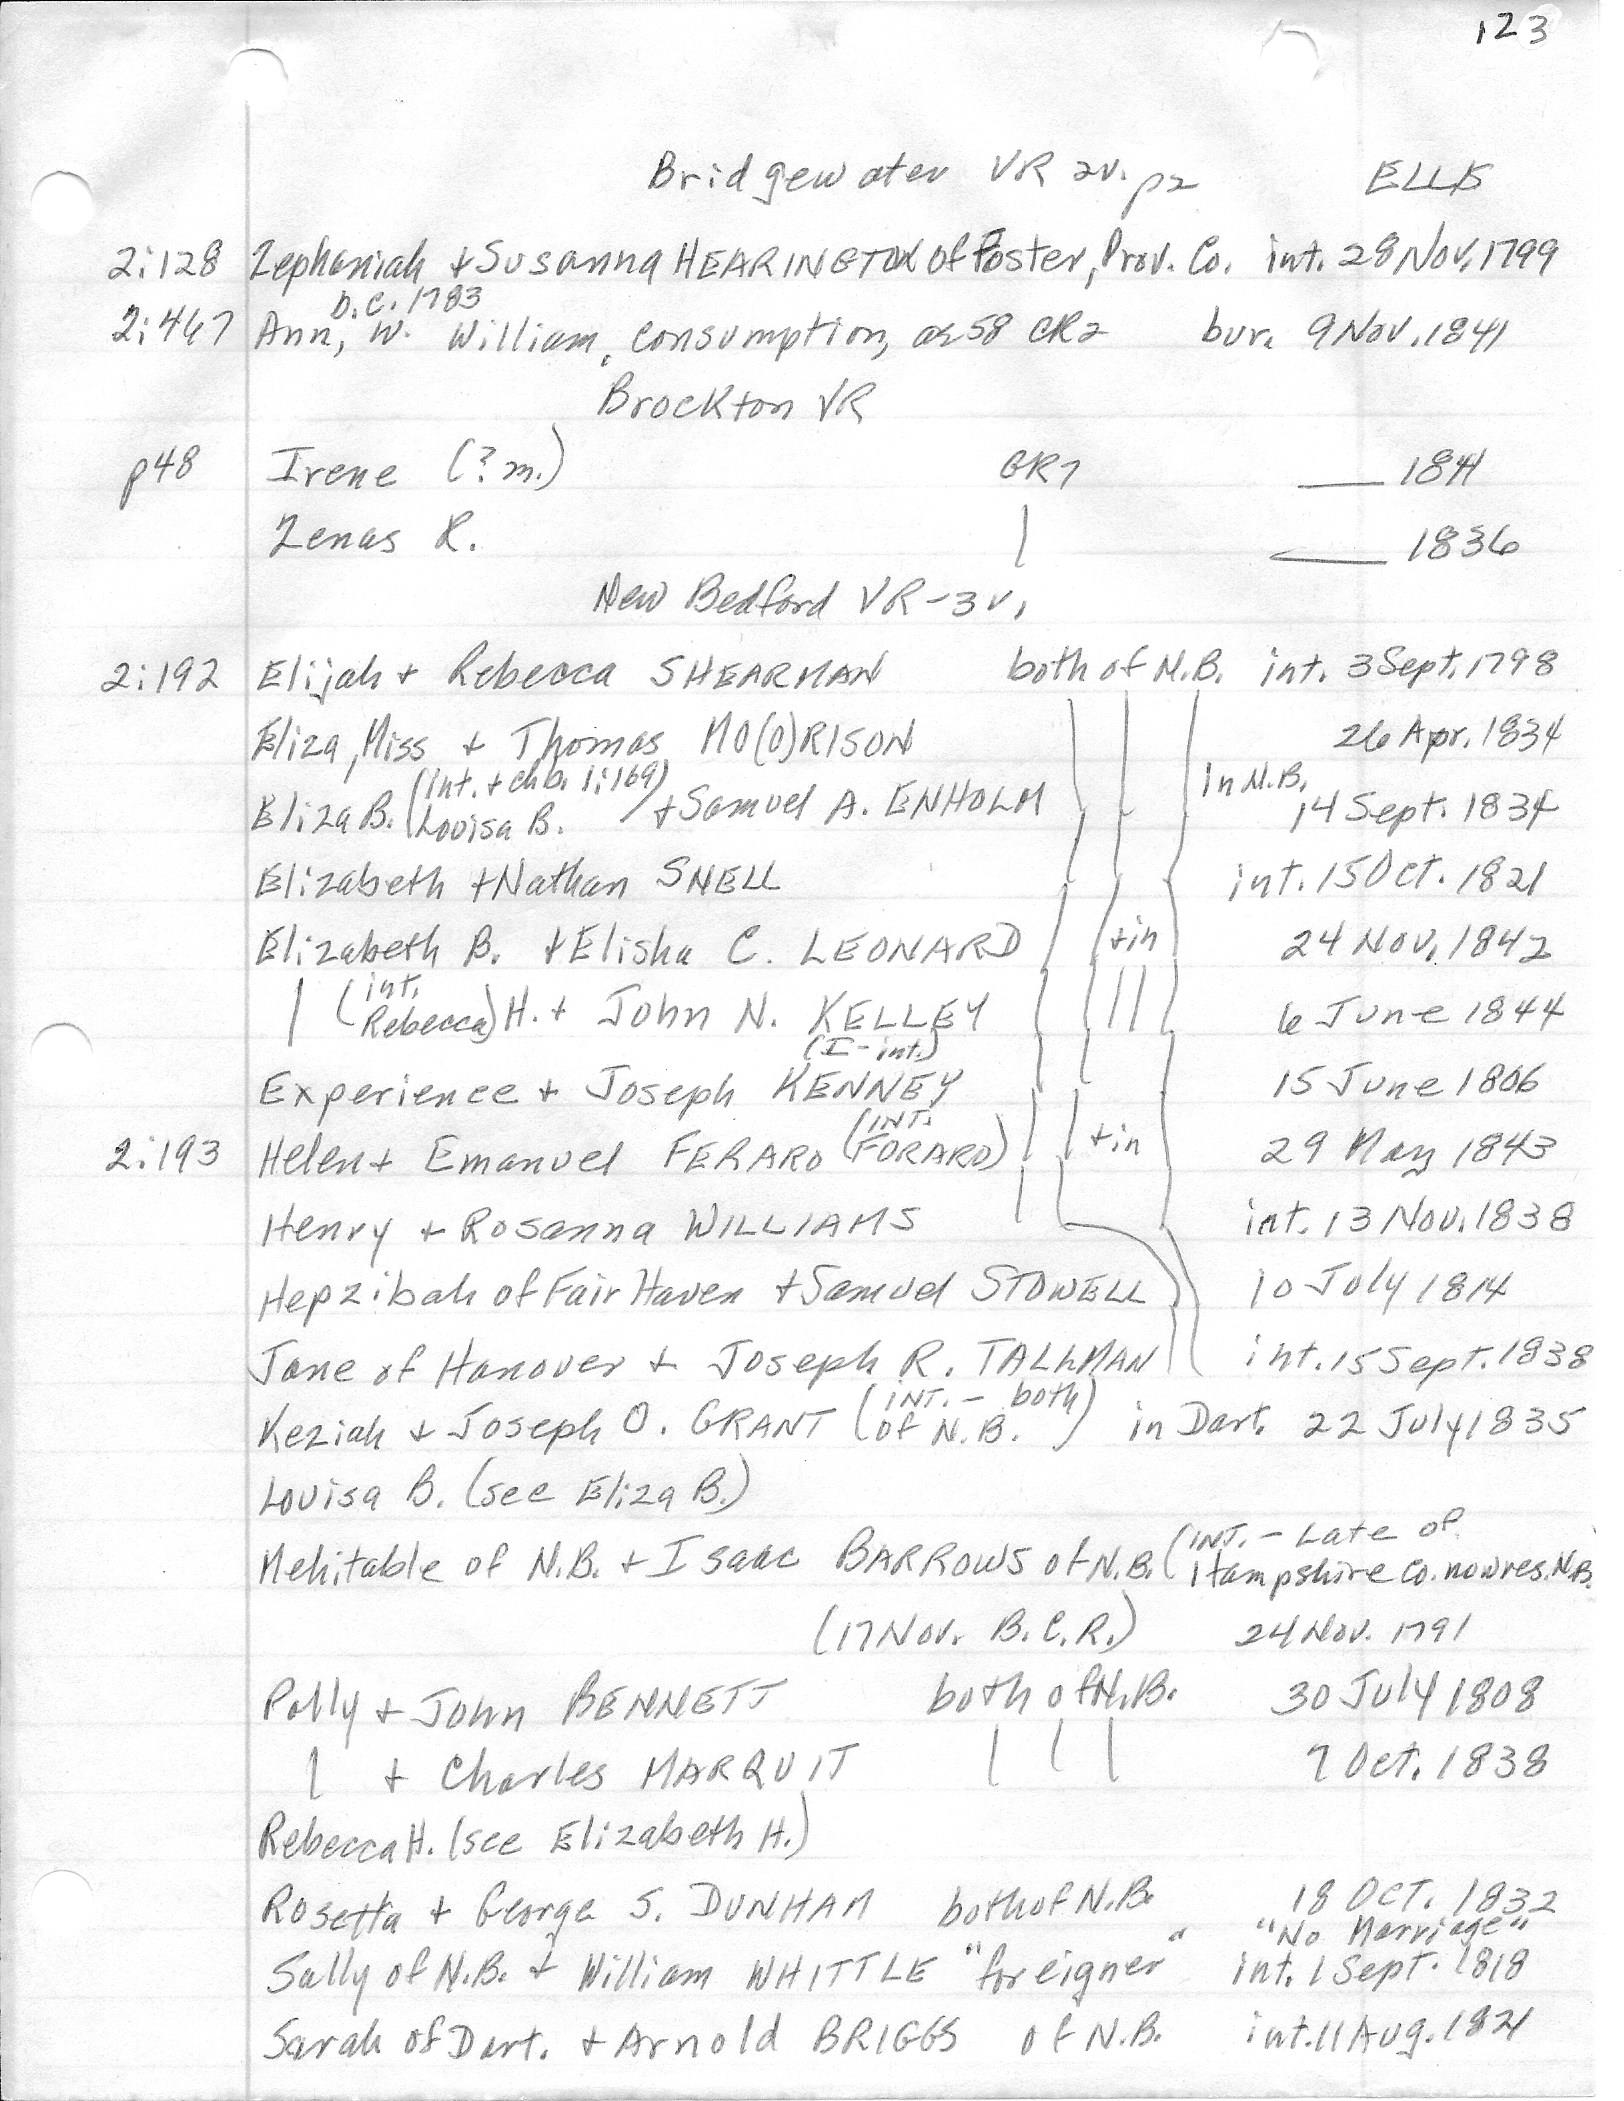 123
Bridgewater VR 2v. p2 ELLIS
2:128 Zephaniah + Susanna HEARINGTON of Foster, Prov. Co. int. 28 Nov. 1799
b.c. 1783
2:467 Ann, w. William, consumption, ae 58 CR2 bur. 9 Nov. 1841
Brockton VR
p48 Irene (? m.) GR7 — 1841
Zenas R. | — 1836
New Bedford VR-3v.
2:192 Elijah + Rebecca SHEARMAN both of N.B. int. 3 Sept. 1798
Eliza, Miss + Thomas MO(O)RISON 26 Apr. 1834
(int. + ch.b. 1:169) in N.B.
Eliza B. (Louisa B.) + Samuel A. ENHOLM 14 Sept. 1834
Elizabeth + Nathan SNELL int. 15 Oct. 1821
Elizabeth B. + Elisha C. LEONARD + in 24 Nov. 1842
(int.
| Rebecca) H. + John N. KELLEY 6 June 1844
(I-int.)
Experience + Joseph KENNEY 15 June 1806
(INT.
2:193 Helen + Emanuel FERARO FORARD) + in 29 May 1843
Henry + Rosanna WILLIAMS int. 13 Nov. 1838
Hepzibah of Fair Haven + Samuel STOWELL 10 July 1814
Jane of Hanover + Joseph R. TALLMAN int. 15 Sept. 1838
(INT. - both
Keziah + Joseph O. GRANT of N.B.) in Dart. 22 July 1835
Louisa B. (see Eliza B.)
(INT. - Late of
Mehitable of N.B. + Isaac BARROWS of N.B. Hampshire Co. now res. N.B.
(17 Nov. B.C.R.) 24 Nov. 1791
Polly + John BENNETT both of N.B. 30 July 1808
| + Charles MARQUIT | | | 7 Oct. 1838
Rebecca H. (see Elizabeth H.)
Rosetta + George S. DUNHAM both of N.B. 18 OCT. 1832
"No Marriage"
Sally of N.B. + William WHITTLE "foreigner" int. 1 Sept. 1818
Sarah of Dart. + Arnold BRIGGS of N.B. int. 11 Aug. 1821